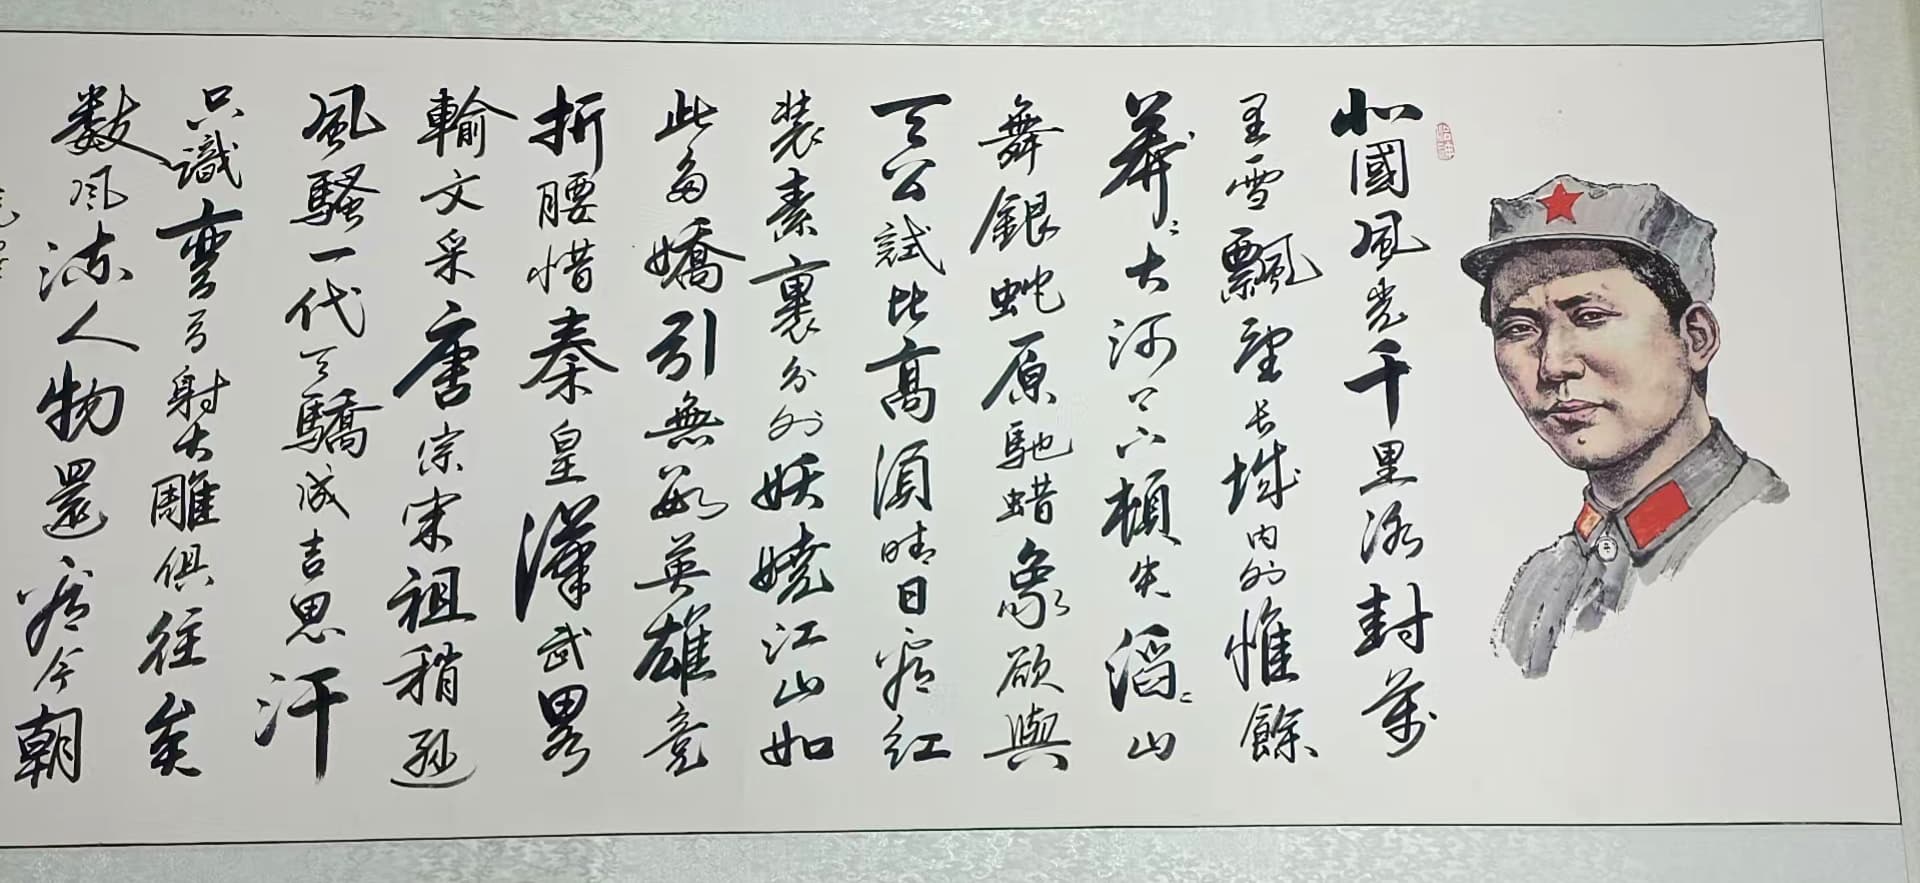 北國風光千里冰封萬
里雪飄望长城内外惟餘
莽〻大河上下頓失滔〻山
舞銀蛇原馳蜡象欲與
天公試比高須晴日看红
装素裹分外妖嬈江山如
此多嬌引無數英雄竞
折腰惜秦皇漢武畧
輸文采唐宗宋祖稍遜
風騷一代天驕成吉思汗
只識彎弓射大雕俱往矣
數風流人物還看今朝